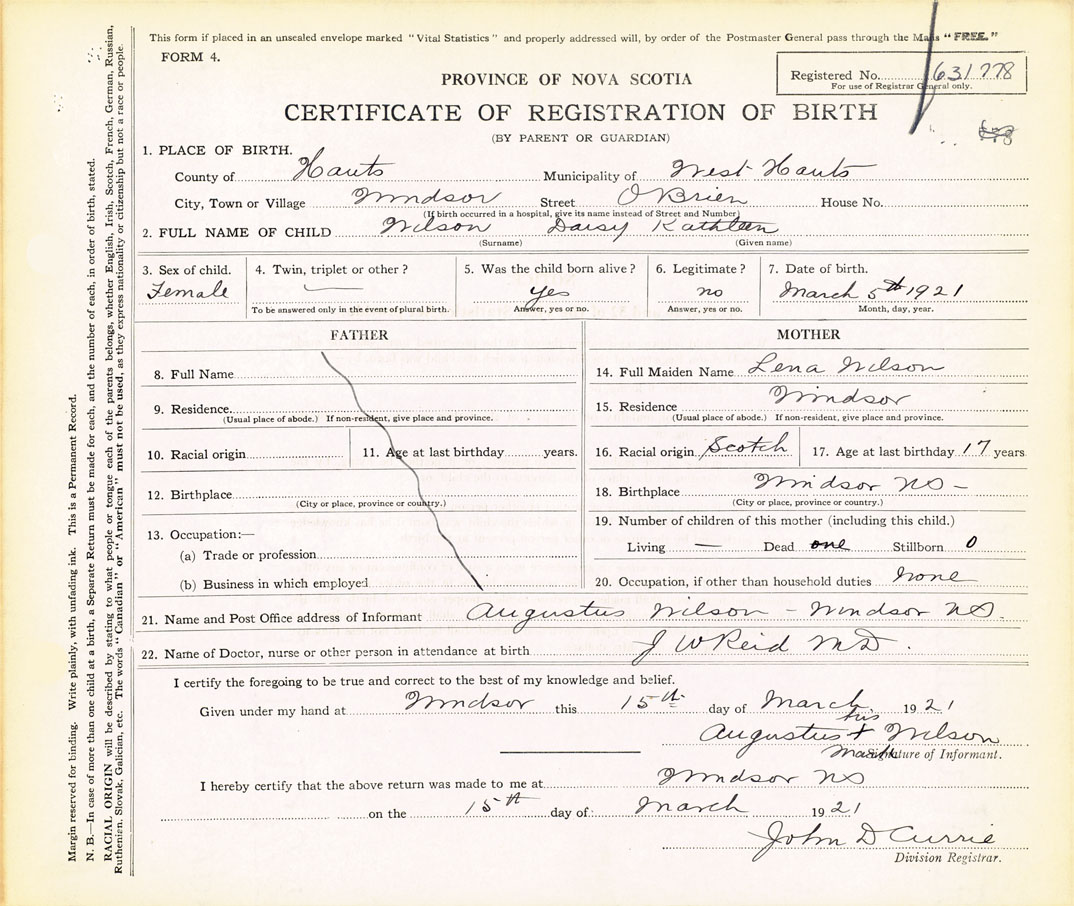 This form if placed in an unsealed envelope marked "Vital Statistics" and properly addressed will, by order of the Postmaster General pass through the Mails "FREE."
FORM 4.
PROVINCE OF NOVA SCOTIA
Registered No. 631778
For use of Registrar General only.
CERTIFICATE OF REGISTRATION OF BIRTH
(BY PARENT OR GUARDIAN)
1. PLACE OF BIRTH.
County of Hants Municipality of West Hants
City, Town or Village Windsor Street O'Brien House No.
(If birth occurred in a hospital, give its name instead of Street and Number)
2. FULL NAME OF CHILD Wilson Daisy Kathleen
(Surname) (Given name)
3. Sex of child. 4. Twin, triplet or other? 5. Was the child born alive? 6. Legitimate? 7. Date of birth.
Female yes no March 5th 1921
To be answered only in the event of plural birth. Answer, yes or no. Answer, yes or no. Month, day, year.
FATHER
8. Full Name
9. Residence
(Usual place of abode.) If non-resident, give place and province.
10. Racial origin 11. Age at last birthday years.
12. Birthplace
(City or place, province or country.)
13. Occupation:—
(a) Trade or profession
(b) Business in which employed
MOTHER
14. Full Maiden Name Lena Wilson
15. Residence Windsor
(Usual place of abode.) If non-resident, give place and province.
16. Racial origin Scotch 17. Age at last birthday 17 years
18. Birthplace Windsor NS -
(City or place, province or country.)
19. Number of children of this mother (including this child.)
Living — Dead one Stillborn 0
20. Occupation, if other than household duties None
21. Name and Post Office address of Informant Augustus Wilson - Windsor NS.
22. Name of Doctor, nurse or other person in attendance at birth J W Reid MD.
I certify the foregoing to be true and correct to the best of my knowledge and belief.
Given under my hand at Windsor this 15th day of March, 1921
his
Augustus + Wilson
mark
Signature of Informant.
I hereby certify that the above return was made to me at Windsor NS
on the 15th day of March 1921
John D Currie
Division Registrar.
Margin reserved for binding. Write plainly, with unfading ink. This is a Permanent Record.
N. B.—In case of more than one child at a birth, a Separate Return must be made for each, and the number of each, in order of birth, stated.
RACIAL ORIGIN will be described by stating to what people or tongue each of the parents belongs, whether English, Irish, Scotch, French, German, Russian,
Ruthenien, Slovak, Galician, etc. The words "Canadian" or "American" must not be used, as they express nationality or citizenship but not a race or people.